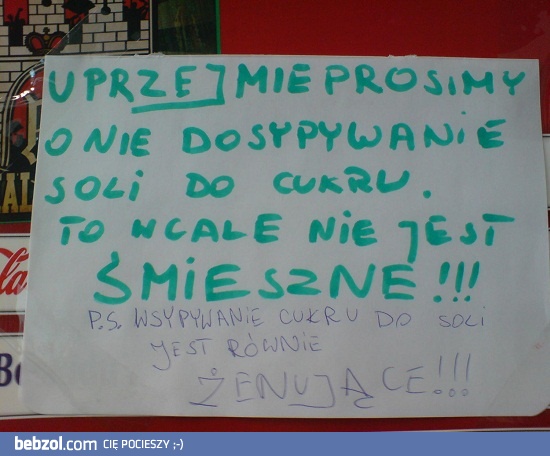 UPRZEJMIE PROSIMY
O NIE DOSYPYWANIE
SOLI DO CUKRU.
TO WCALE NIE JEST
ŚMIESZNE!!!
P.S. WSYPYWANIE CUKRU DO SOLI
JEST RÓWNIE
ŻENUJĄCE!!!
bebzol.com CIĘ POCIESZY ;-)